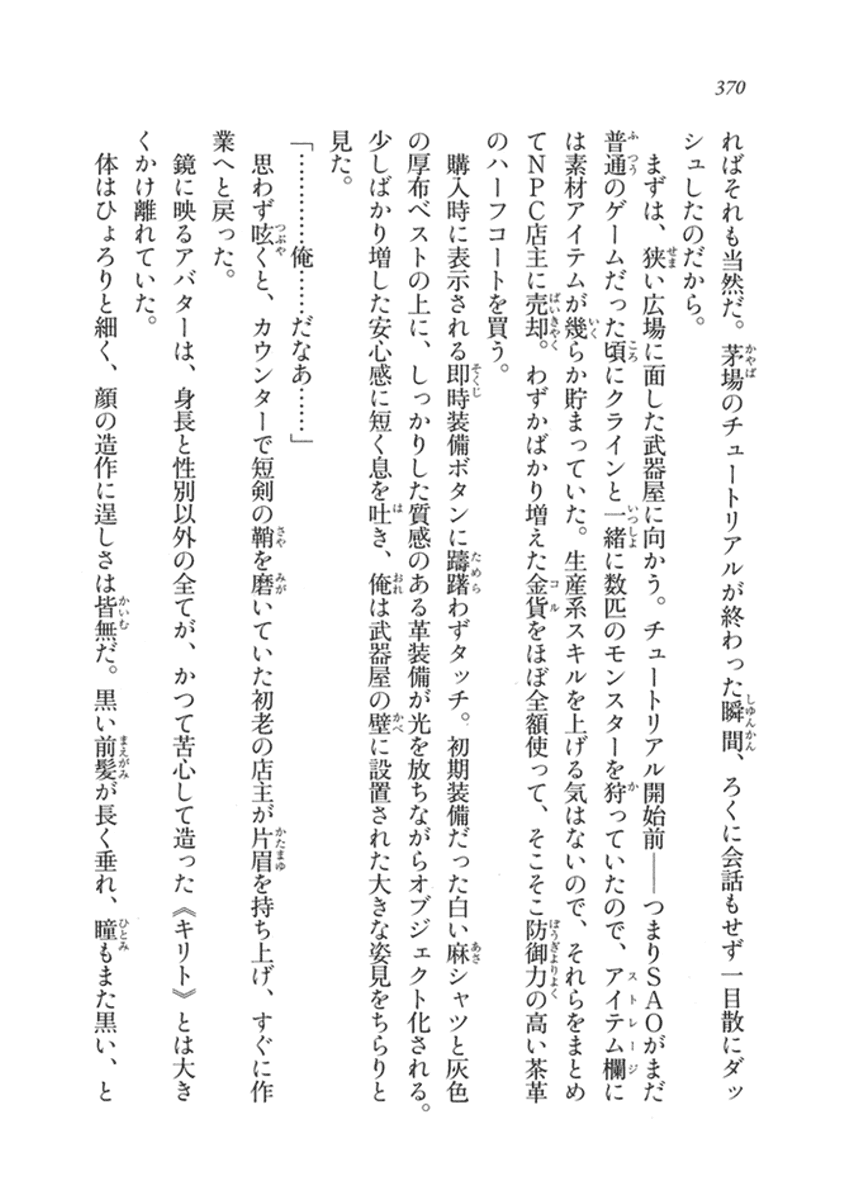 370
ればそれも当然だ。茅場のチュートリアルが終わった瞬間、ろくに会話もせず一目散にダッ
シュしたのだから。
まずは、狭い広場に面した武器屋に向かう。チュートリアル開始前――つまりSAOがまだ
普通のゲームだった頃にクラインと一緒に数匹のモンスターを狩っていたので、アイテム欄に
は素材アイテムが幾らか貯まっていた。生産系スキルを上げる気はないので、それらをまとめ
てNPC店主に売却。わずかばかり増えた金貨をほぼ全額使って、そこそこ防御力の高い茶革
のハーフコートを買う。
購入時に表示される即時装備ボタンに躊躇わずタッチ。初期装備だった白い麻シャツと灰色
の厚布ベストの上に、しっかりした質感のある革装備が光を放ちながらオブジェクト化される。
少しばかり増した安心感に短く息を吐き、俺は武器屋の壁に設置された大きな姿見をちらりと
見た。
「…………俺……だなあ……」
思わず呟くと、カウンターで短剣の鞘を磨いていた初老の店主が片眉を持ち上げ、すぐに作
業へと戻った。
鏡に映るアバターは、身長と性別以外の全てが、かつて苦心して造った《キリト》とは大き
くかけ離れていた。
体はひょろりと細く、顔の造作に逞しさは皆無だ。黒い前髪が長く垂れ、瞳もまた黒い、と